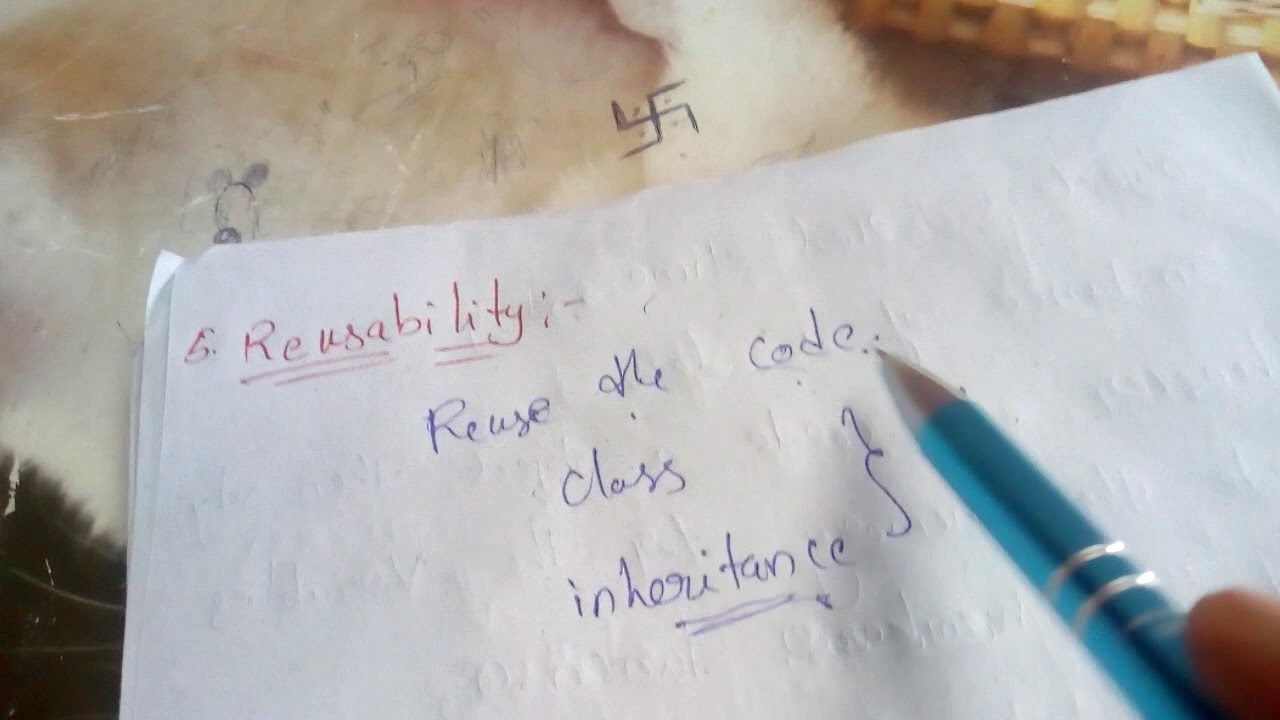 5. Reusability :-
Reuse the code.
class }
inheritance